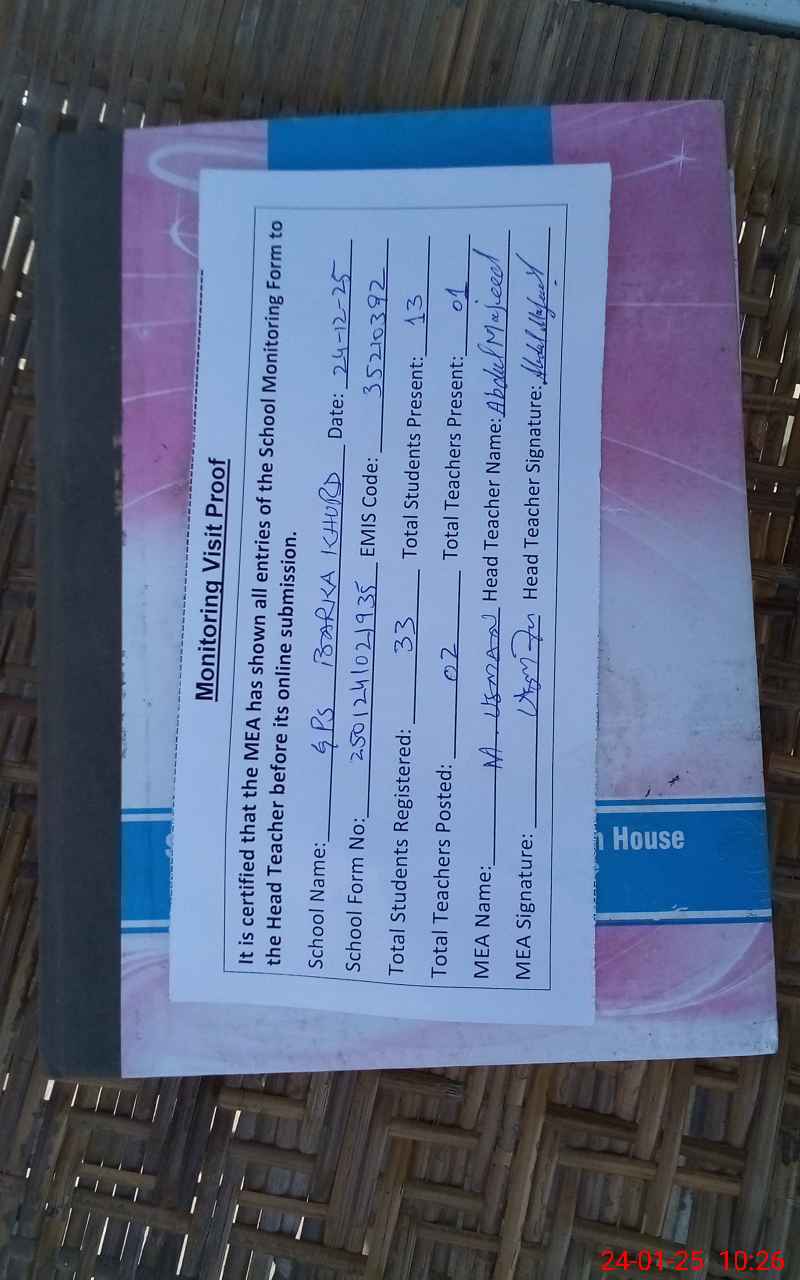 Monitoring Visit Proof
It is certified that the MEA has shown all entries of the School Monitoring Form to
the Head Teacher before its online submission.
School Name: GPS BARKA KHURD Date: 24-12-25
School Form No: 2501241021935 EMIS Code: 35210392
Total Students Registered: 33 Total Students Present: 13
Total Teachers Posted: 02 Total Teachers Present: 01
MEA Name: M. USMAN Head Teacher Name: Abdul Majeed
MEA Signature: Usman Head Teacher Signature: Abdul Majeed
House
24-01-25 10:26